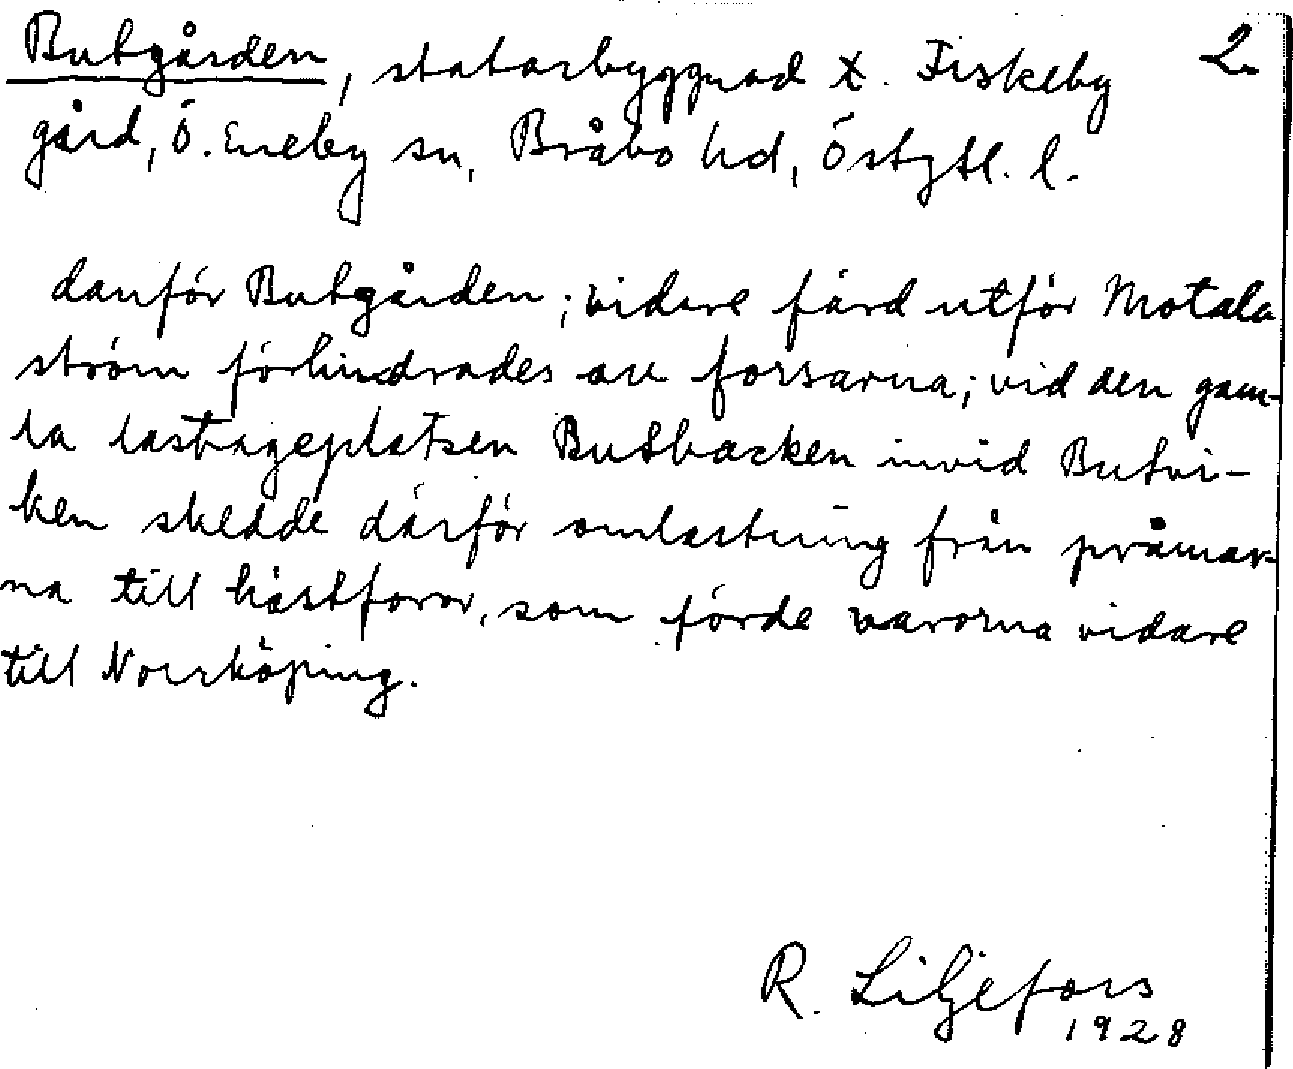 Butgården, statarbyggnad t. Fiskeby 2.
gård, Ö. Eneby sn, Bråbo hd, Östgtl. l.
danför Butgården; vidare färd utför Motala
ström förhindrades av forsarna; vid den gam-
la lastageplatsen Butbacken invid Butvi-
ken skedde därför omlastning från pråmar-
na till hästforor, som förde varorna vidare
till Norrköping.
R. Liljefors
1928